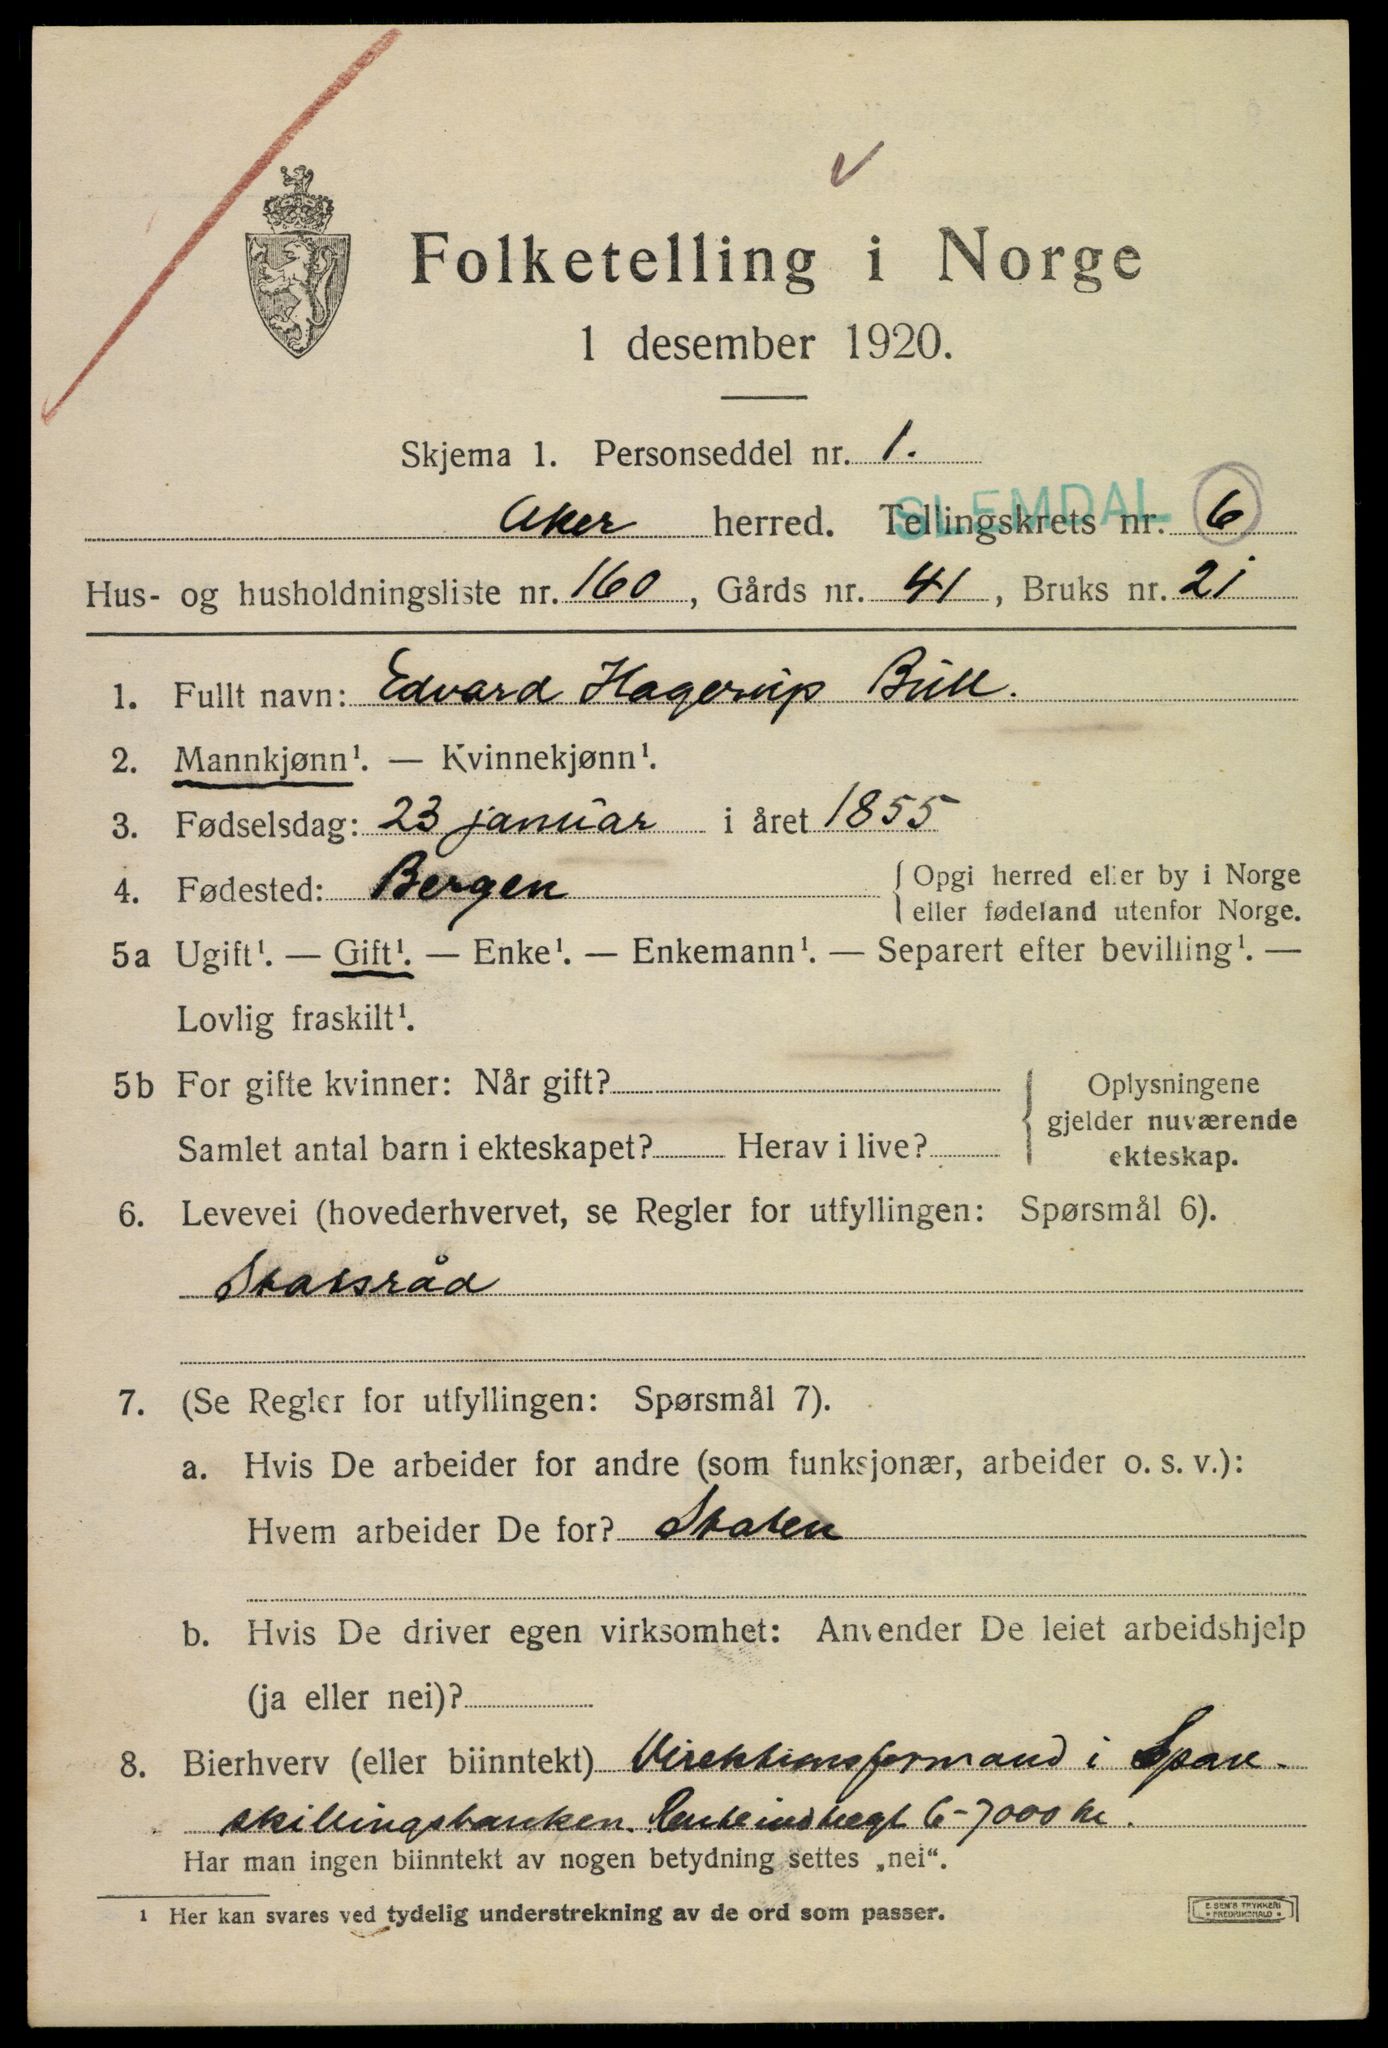 Folketelling i Norge
1 desember 1920.
Skjema 1. Personseddel nr. 1.
SLEMDAL
Aker herred. Tellingskrets nr. 6
Hus- og husholdningsliste nr. 160, Gårds nr. 41, Bruks nr. 21
1. Fullt navn: Edvard Hagerup Bull.
2. Mannkjønn¹. — Kvinnekjønn¹.
3. Fødselsdag: 23 januar i året 1855
4. Fødested: Bergen { Opgi herred eller by i Norge
eller fødeland utenfor Norge.
5a Ugift¹. — Gift¹. — Enke¹. — Enkemann¹. — Separert efter bevilling¹. —
Lovlig fraskilt¹.
5b For gifte kvinner: Når gift?
Samlet antal barn i ekteskapet? Herav i live?
{ Oplysningene
gjelder nuværende
ekteskap.
6. Levevei (hovederhvervet, se Regler for utfyllingen: Spørsmål 6).
Statsråd
7. (Se Regler for utfyllingen: Spørsmål 7).
a. Hvis De arbeider for andre (som funksjonær, arbeider o. s. v.):
Hvem arbeider De for? Staten
b. Hvis De driver egen virksomhet: Anvender De leiet arbeidshjelp
(ja eller nei)?
8. Bierhverv (eller biinntekt) Direktionsformand i Spare-
skillingsbanken. Renteindtægt 6-7000 kr.
Har man ingen biinntekt av nogen betydning settes „nei“.
¹ Her kan svares ved tydelig understrekning av de ord som passer.
E. SEM'S TRYKKERI
* FREDRIKSHALD *